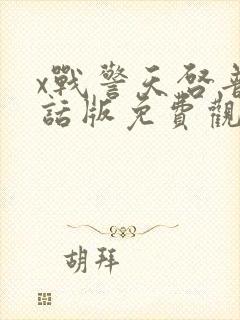 x戰警天啓普
話版免費觀
胡拜